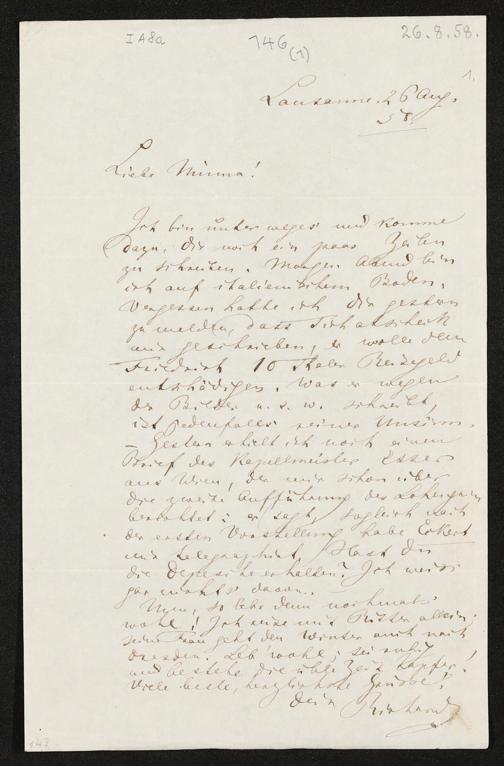 I A8a
146 (1)
26.8.58.
1.
Lausanne. 26 Aug.
58.
Liebe Minna!
Ich bin unterweges und komme
dazu, dir noch ein paar Zeilen
zu schreiben. Morgen Abend bin
ich auf italienischem Boden.
Vergessen hatte ich dir gestern
zu melden, dass Tichatscheck
mir geschrieben, er wolle dem
Friedrich 10 Thaler Reisegeld
entschädigen. Was er wegen
der Bilder u. s. w. schreibt,
ist jedenfalls reiner Unsinn.
– Gestern erhielt ich noch einen
Brief des Kapellmeister Esser
aus Wien, der mir schon über
die zweite Aufführung des Lohengrin
berichtet: er sagt, sogleich nach
der ersten Vorstellung habe Eckert
mir telegraphirt. Hast du
die Depesche erhalten? Ich weiss
gar nichts davon.
Nun, so lebe denn nochmals
wohl! Ich reise mit Ritter allein;
seine Frau geht den Winter auch nach
Dresden. Leb' wohl; sei ruhig
und bestehe die üble Zeit tapfer!
Viele beste, herzlichste Grüsse!
Dein Richard
143.